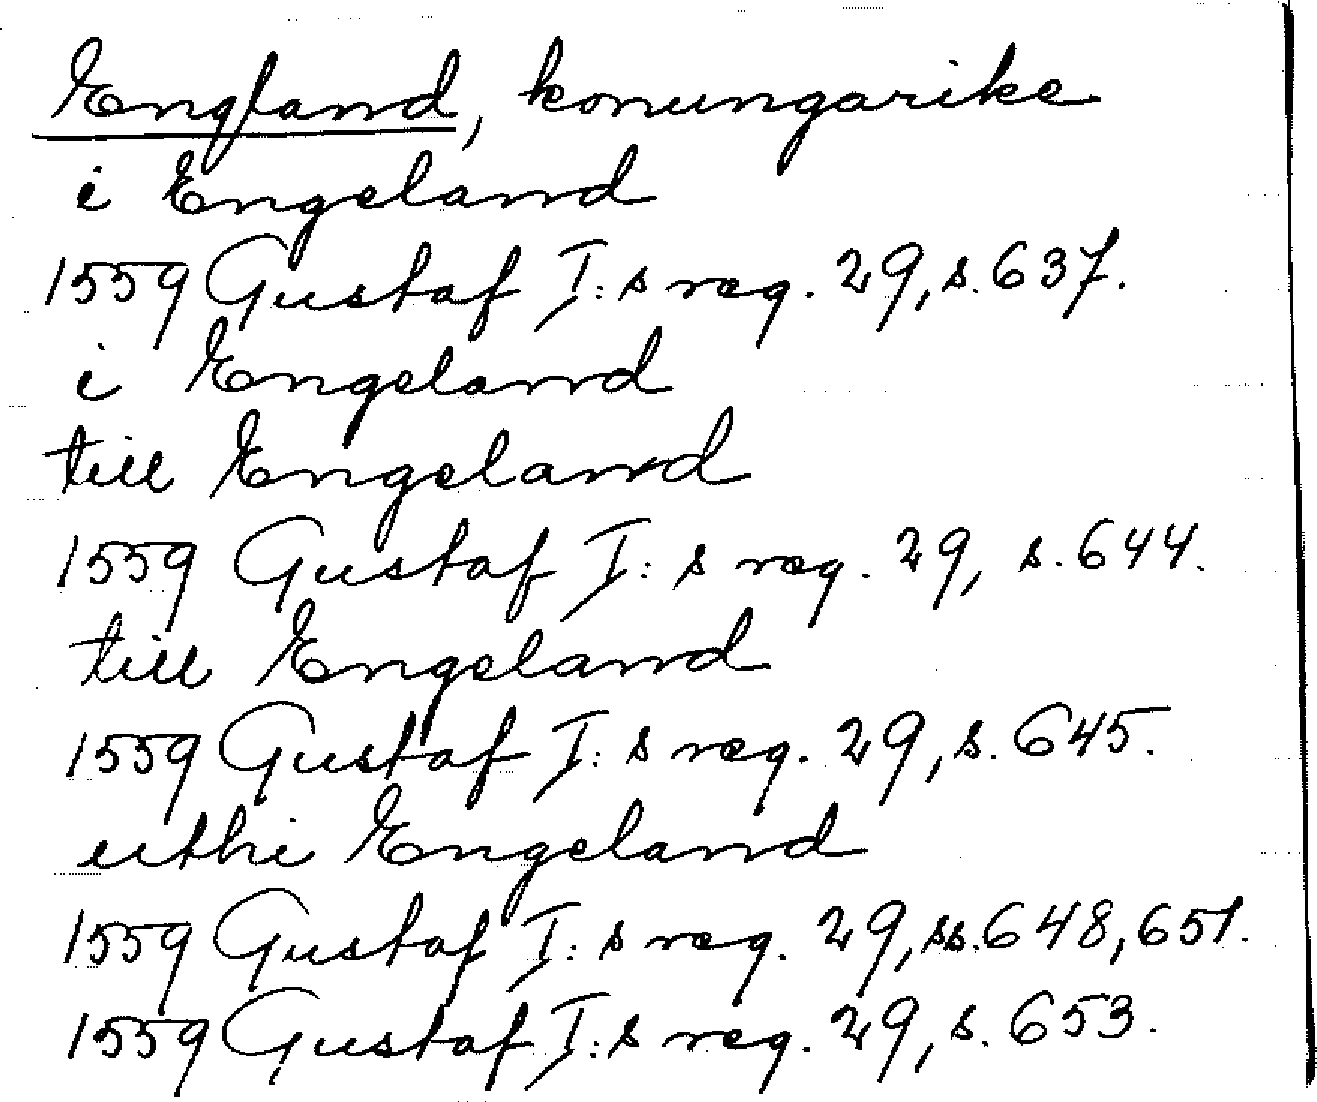 England, konungarike
i Engeland
1559 Gustaf I:s reg. 29, s. 637.
i Engeland
till Engeland
1559 Gustaf I:s reg. 29, s. 644.
till Engeland
1559 Gustaf I:s reg. 29, s. 645.
uthi Engeland
1559 Gustaf I:s reg. 29, ss. 648, 651.
1559 Gustaf I:s reg. 29, s. 653.